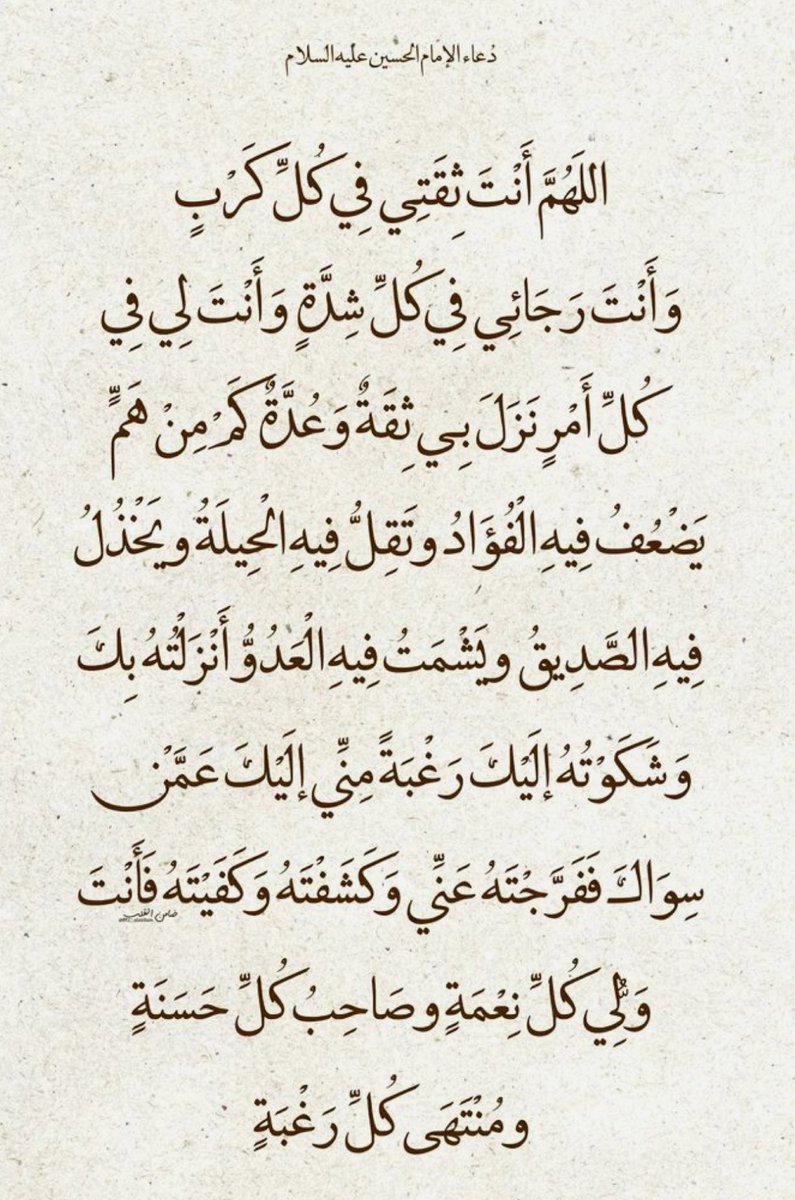 دُعاء الإمام الحسين عليه السلام
اللَهُمَّ أَنْتَ ثِقَتِي فِي كُلِّ كَرْبٍ
وَأَنْتَ رَجَائِي فِي كُلِّ شِدَّةٍ وَأَنْتَ لِي فِي
كُلِّ أَمْرٍ نَزَلَ بِي ثِقَةٌ وَعُدَّةٌ كَمْ مِنْ هَمٍّ
يَضْعُفُ فِيهِ الْفُؤَادُ وتَقِلُّ فِيهِ الْحِيلَةُ ويَخْذُلُ
فِيهِ الصَّدِيقُ ويَشْمَتُ فِيهِ الْعَدُوُّ أَنْزَلْتُهُ بِكَ
وَشَكَوْتُهُ إلَيْكَ رَغْبَةً مِنِّي إلَيْكَ عَمَّنْ
سِوَاكَ فَفَرَّجْتَهُ عَنِّي وَكَشَفْتَهُ وَكَفَيْتَهُ فَأَنْتَ
وَلِيُّ كُلِّ نِعْمَةٍ وصَاحِبُ كُلِّ حَسَنَةٍ
ومُنْتَهَى كُلِّ رَغْبَةٍ